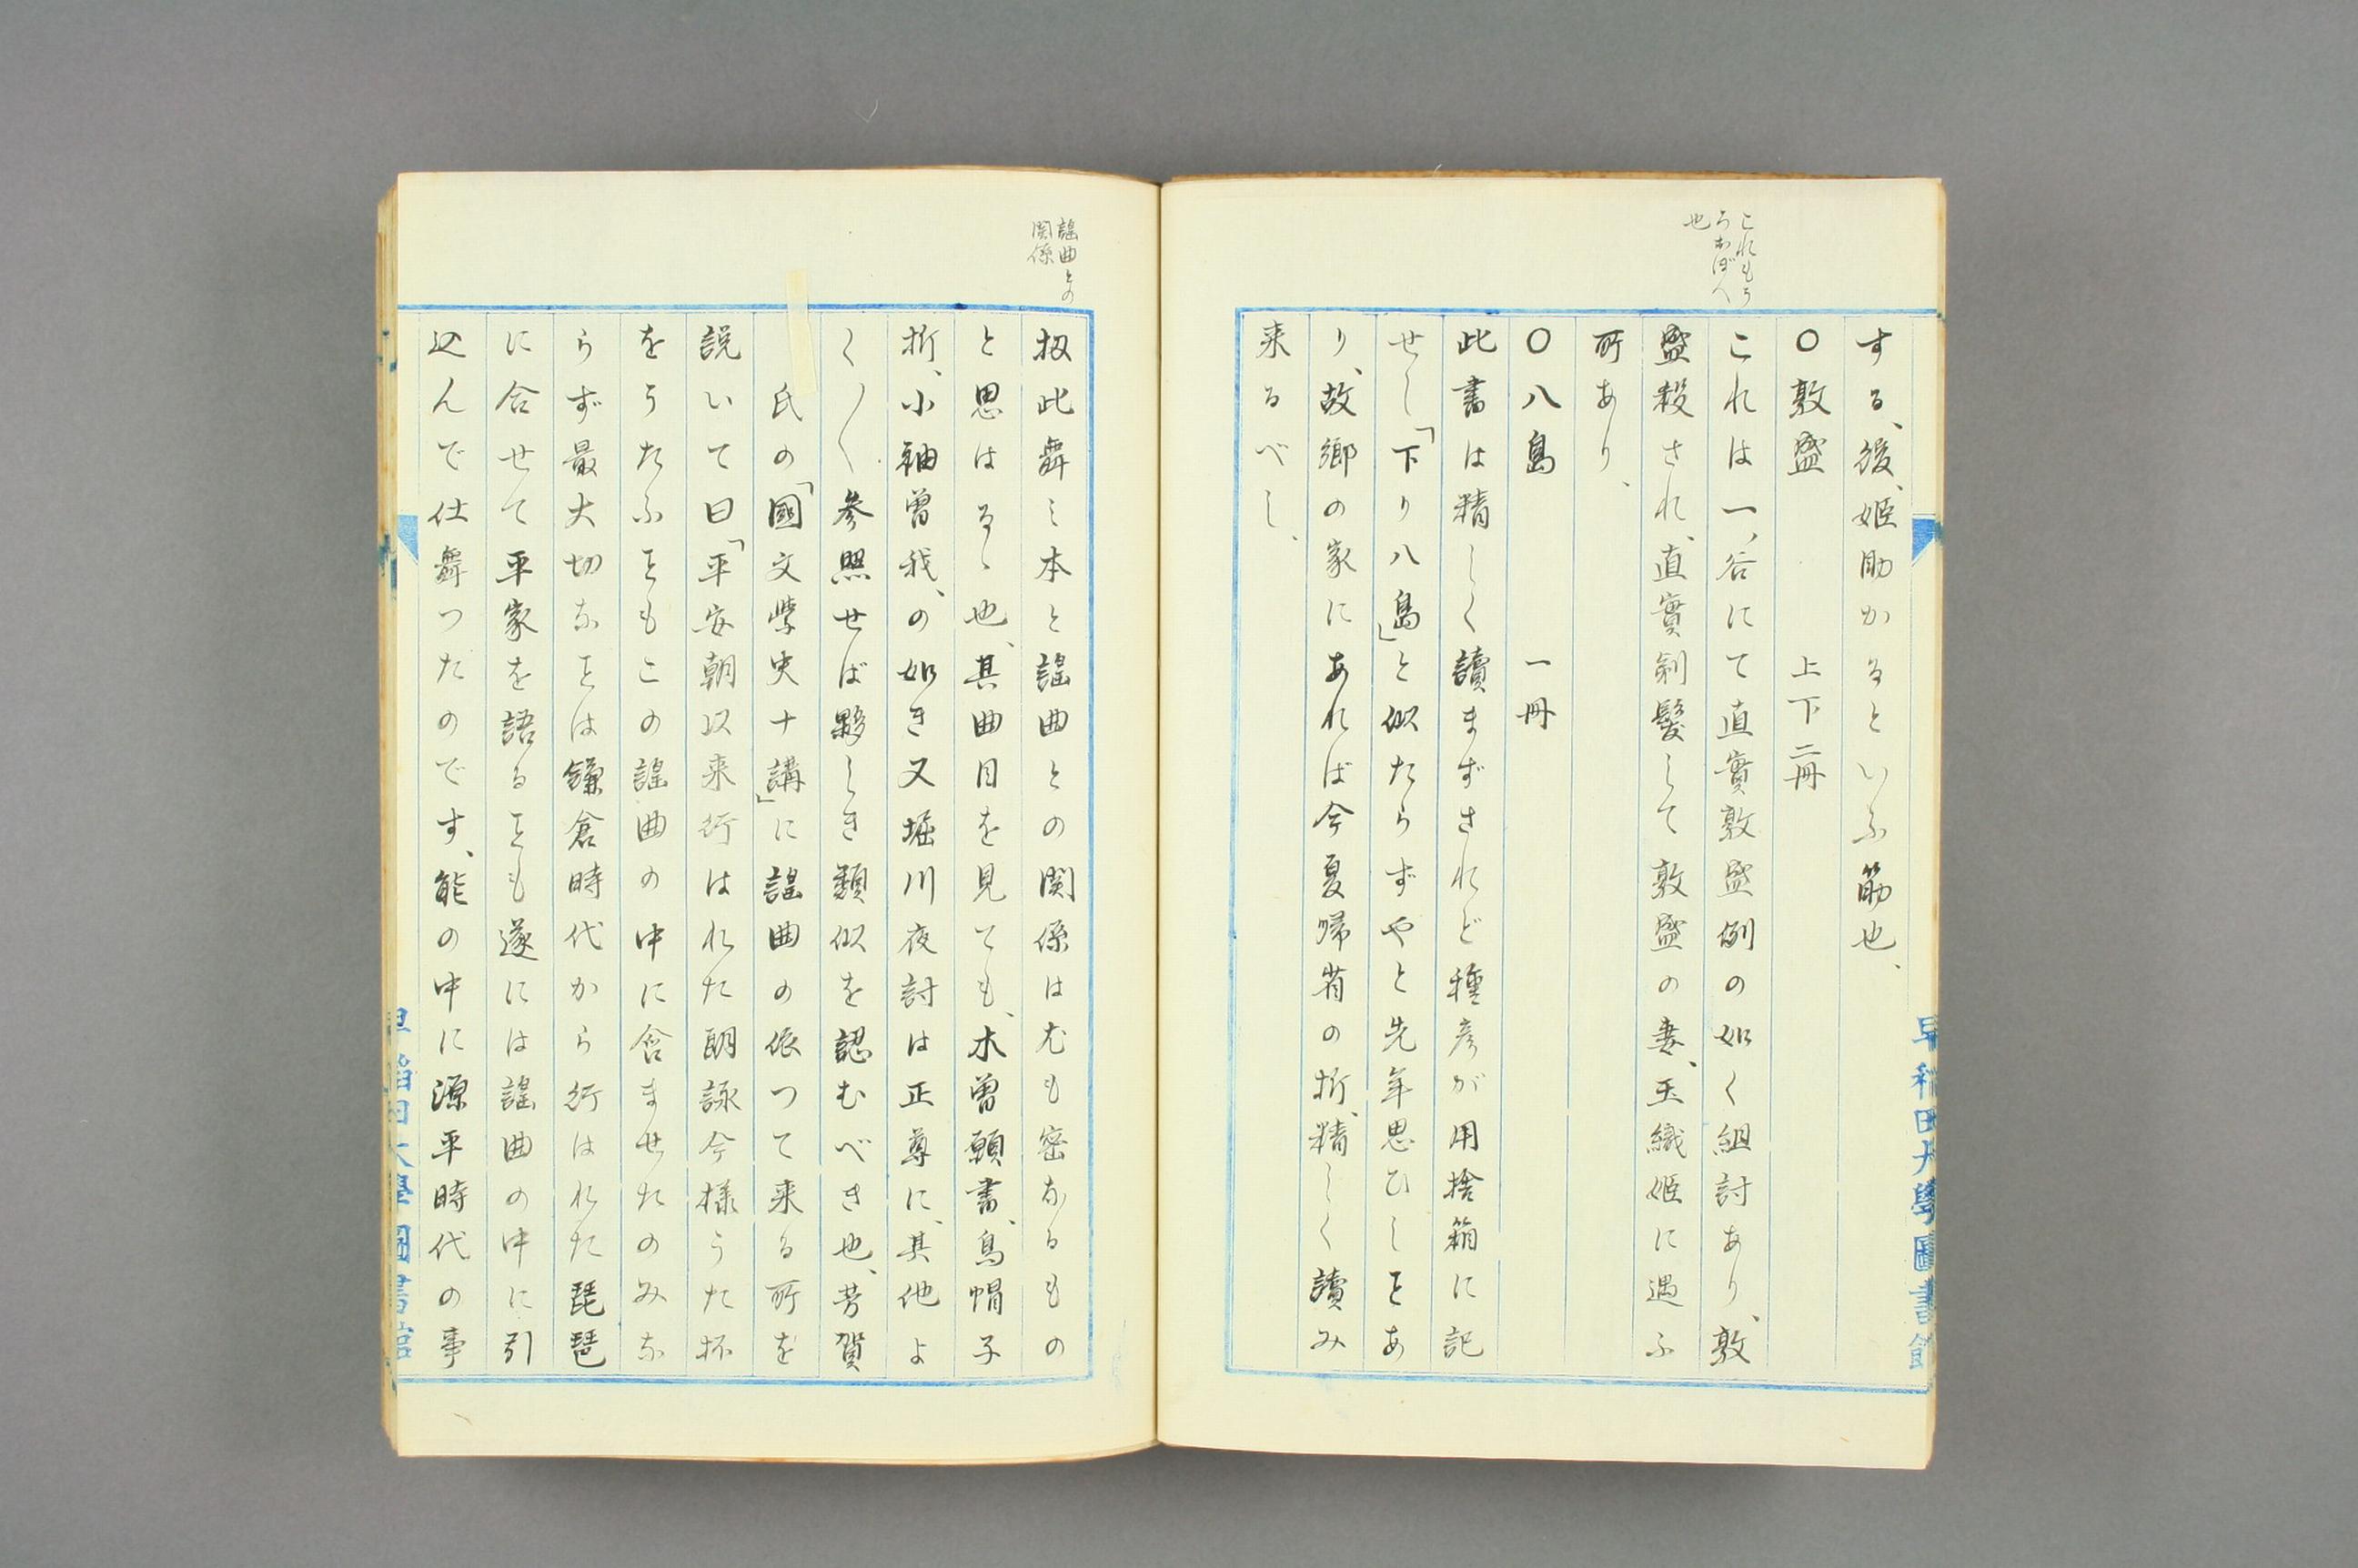 これもう
ろおぼへ
也
する、後、姫助かるといふ筋也、
〇敦盛　上下二冊
これは一、谷にて直實敦盛例の如く組討あり、敦
盛殺され、直實剃髪して敦盛の妻、玉織姫に遇ふ
所あり、
〇八島　一冊
此書は精しく讀まずされど種彦が用捨箱に記
せし「下り八島」と似たらずやと先年思ひしヿあ
り、故郷の家にあれば今夏帰省の折、精しく讀み
来るべし、
早稲田大學圖書館
謡曲との
関係
扨此舞ミ本と謡曲との関係は尤も密なるもの
と思はるゝ也、其曲目を見ても、木曽願書、烏帽子
折、小袖曽我、の如き又堀川夜討は正尊に、其他よ
く〱参照せば夥しき類似を認むべき也、芳賀
氏の「國文学史十講」に謡曲の依つて来る所を
説いて曰「平安朝以来行はれた朗詠今様うた杯
をうたふヿもこの謡曲の中に含ませたのみな
らず最大切なヿは鎌倉時代から行はれた琵琶
に合せて平家を語るヿも遂には謡曲の中に引
込んで仕舞つたのです、能の中に源平時代の事
早稲田大學圖書館